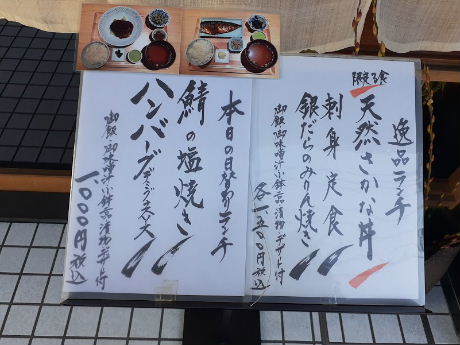 逸品ランチ
限定食
天然さかな丼
刺身定食
銀だらのみりん焼き
御飯 御味噌汁 小鉢2品 漬物 デザート付
各1500円 税込
本日の日替わりランチ
鯖の塩焼き
ハンバーグデミグラス
御飯 御味噌汁 小鉢2品 漬物 デザート付
1000円 税込